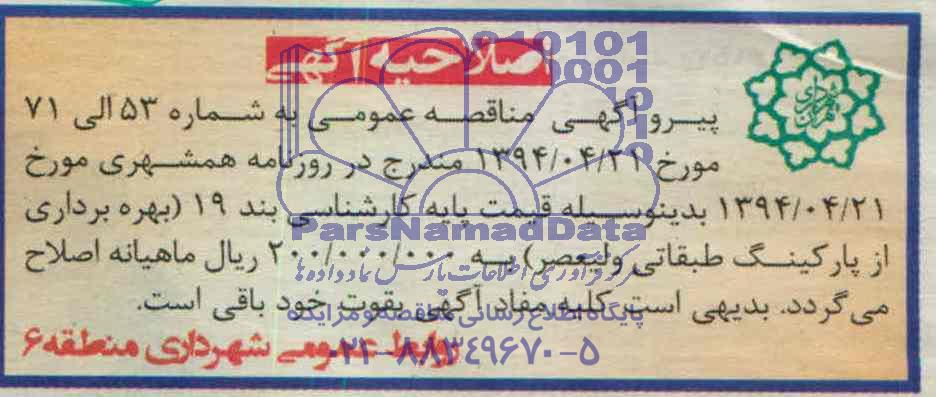 اصلاحیه آگهی
پیرو آگهی مناقصه عمومی به شماره ۵۳ الی ۷۱
مورخ ۱۳۹۴/۰۴/۲۱ مندرج در روزنامه همشهری مورخ
۱۳۹۴/۰۴/۲۱ بدینوسیله قیمت پایه کارشناسی بند ۱۹ (بهره برداری
از پارکینگ طبقاتی ولیعصر) به ۲۰۰/۰۰۰/۰۰۰ ریال ماهیانه اصلاح
می گردد. بدیهی است کلیه مفاد آگهی بقوت خود باقی است.
روابط عمومی شهرداری منطقه۶
ParsNamadData
مرکز فرآوری اطلاعات پارس نماد داده ها
پایگاه اطلاع رسانی مناقصه و مزایده
۰۲۱-۸۸۳۴۹۶۷۰-۵